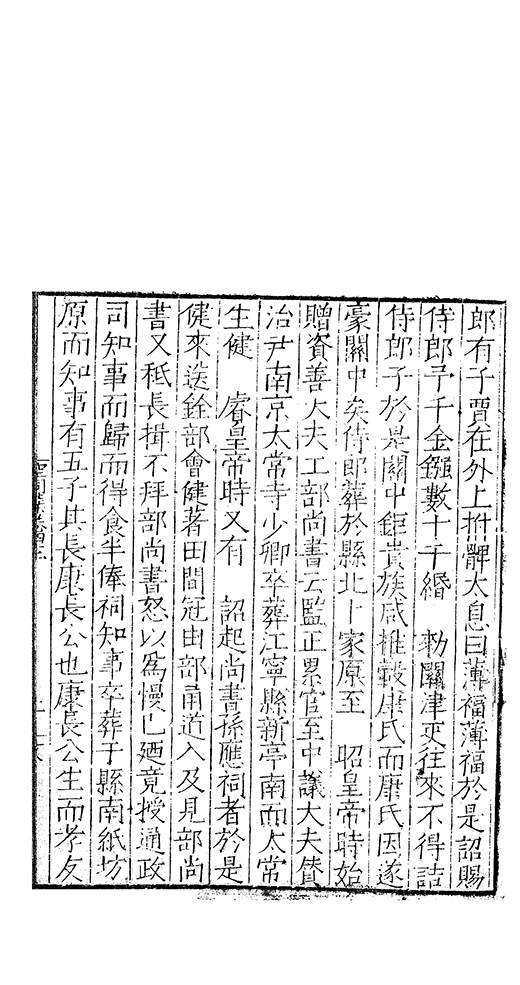 郎有子賈在外上拊髀太息曰薄福薄福於是詔賜
侍郎予千金鏹數十千緡　勑關津吏往來不得詰
侍郎子於是關中鉅貴族咸推轂康氏而康氏因遂
豪關中矣侍郎葬於縣北十家原至　昭皇帝時始
贈資善大夫工部尚書云監正累官至中議大夫贊
治尹南京太常寺少卿卒葬江寧縣新亭南而太常
生健　睿皇帝時又有　詔起尚書孫應祠者於是
健來送銓部會健著田間冠由部甬道入及見部尚
書又秪長揖不拜部尚書怒以爲慢己廼竟授通政
司知事而歸而得食半俸祠知事卒葬于縣南紙坊
原而知事有五子其長康長公也康長公生而孝友